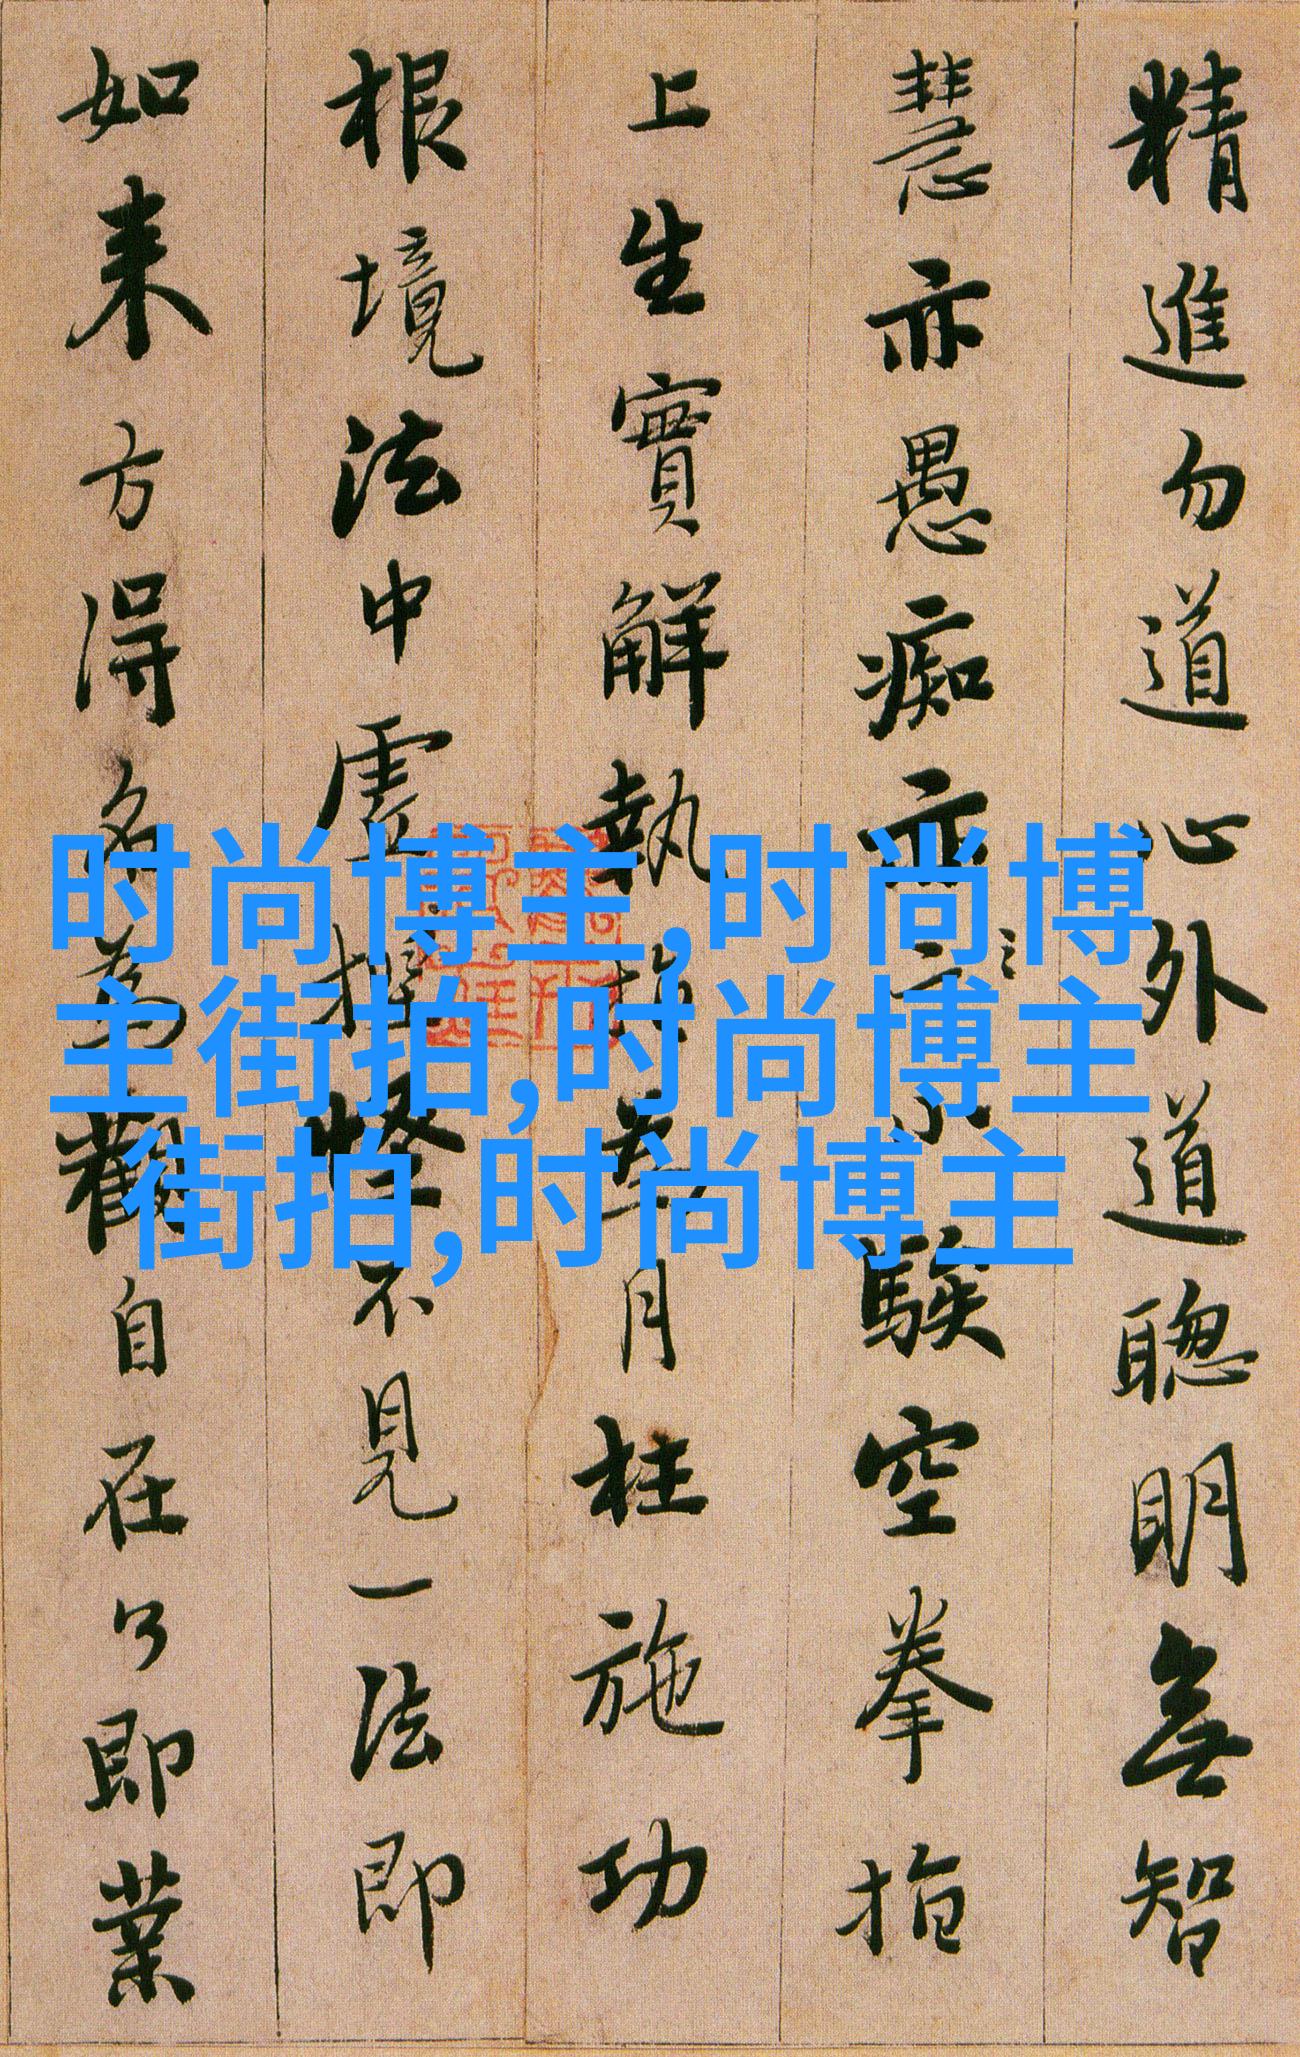 精進勿道心外道聰明無智
慧亦愚癡亦小騃空拳指
上生實解執指為月枉施功
根境法中虛捏怪不見一法即
如来方得名為觀自在了即業
时尚博主,时尚博
主街拍,时尚博主
街拍,时尚博主